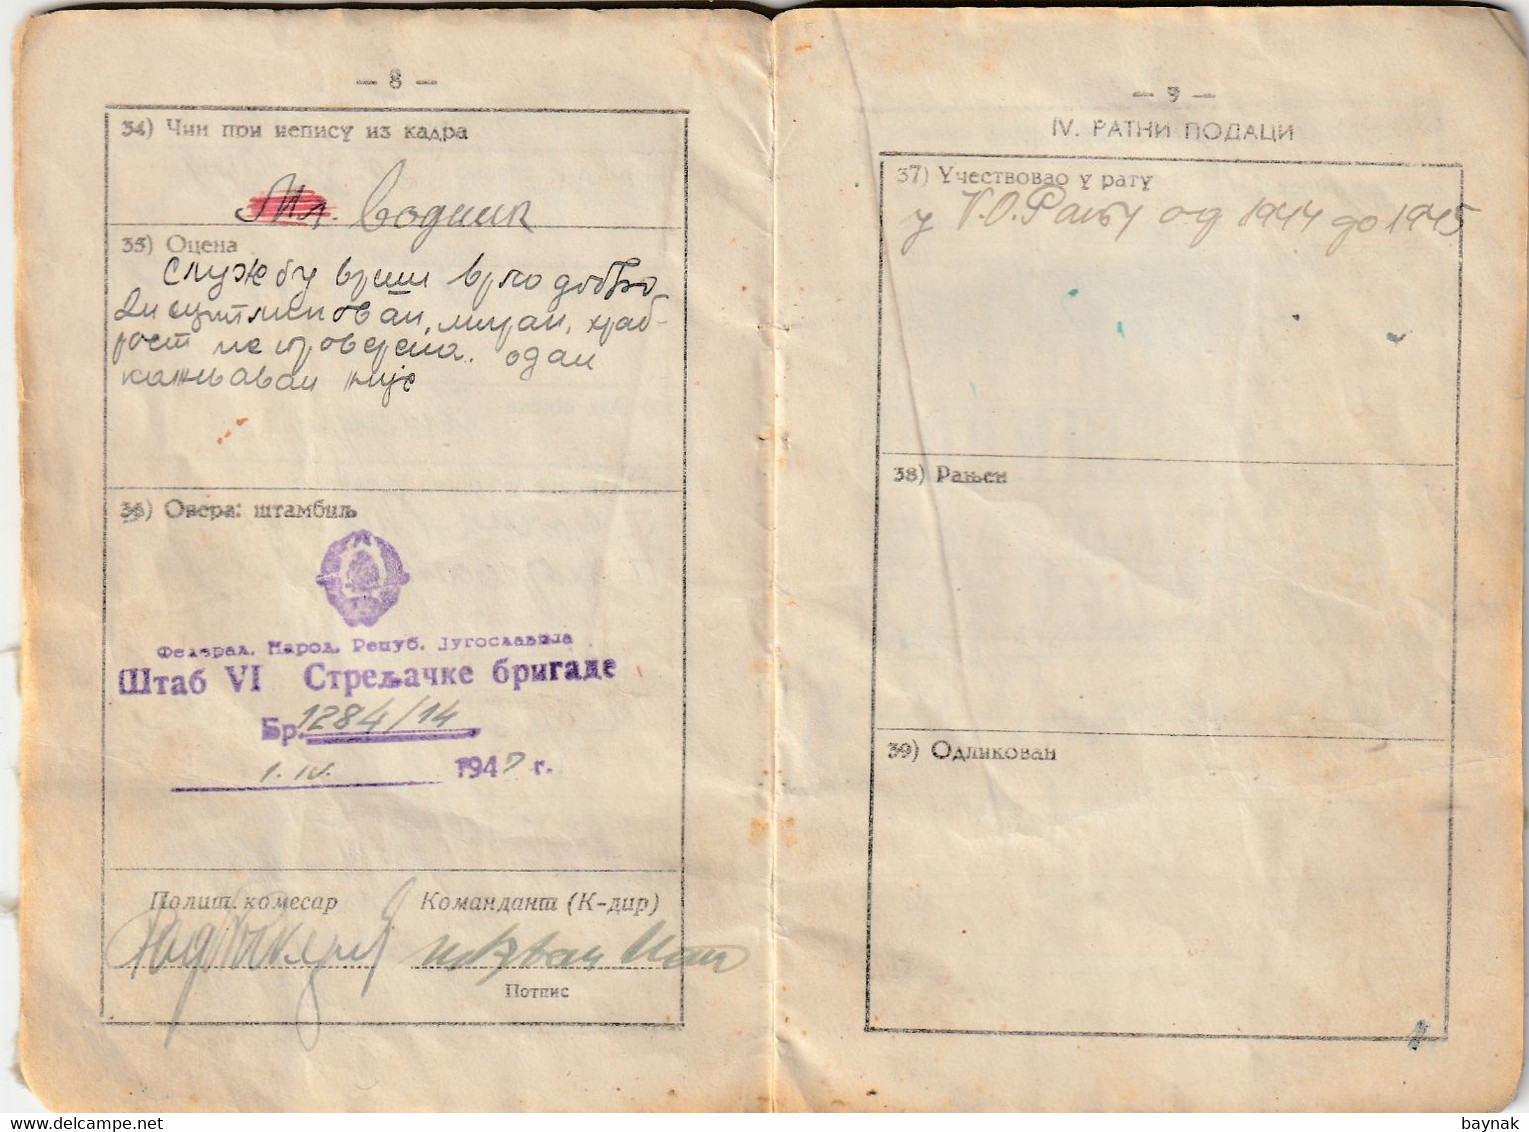 — 8 —
34) Чин при испису из кадра
Мл. Водник
35) Оцена
Службу врши врло добро
Дисциплинован, миран, храб-
рост не проверена. одан
кажњаван није
36) Овера: штамбиљ
Федерал. Народ. Репуб. Југославија
Штаб VI Стрељачке бригаде
Бр. 1284/14
1. IV. 1947 г.
Полит. комесар Командант (К-дир)
Потпис
— 9 —
IV. РАТНИ ПОДАЦИ
37) Учествовао у рату
у Н.О.Рату од 1944 до 1945
38) Рањен
39) Одликован
baynak